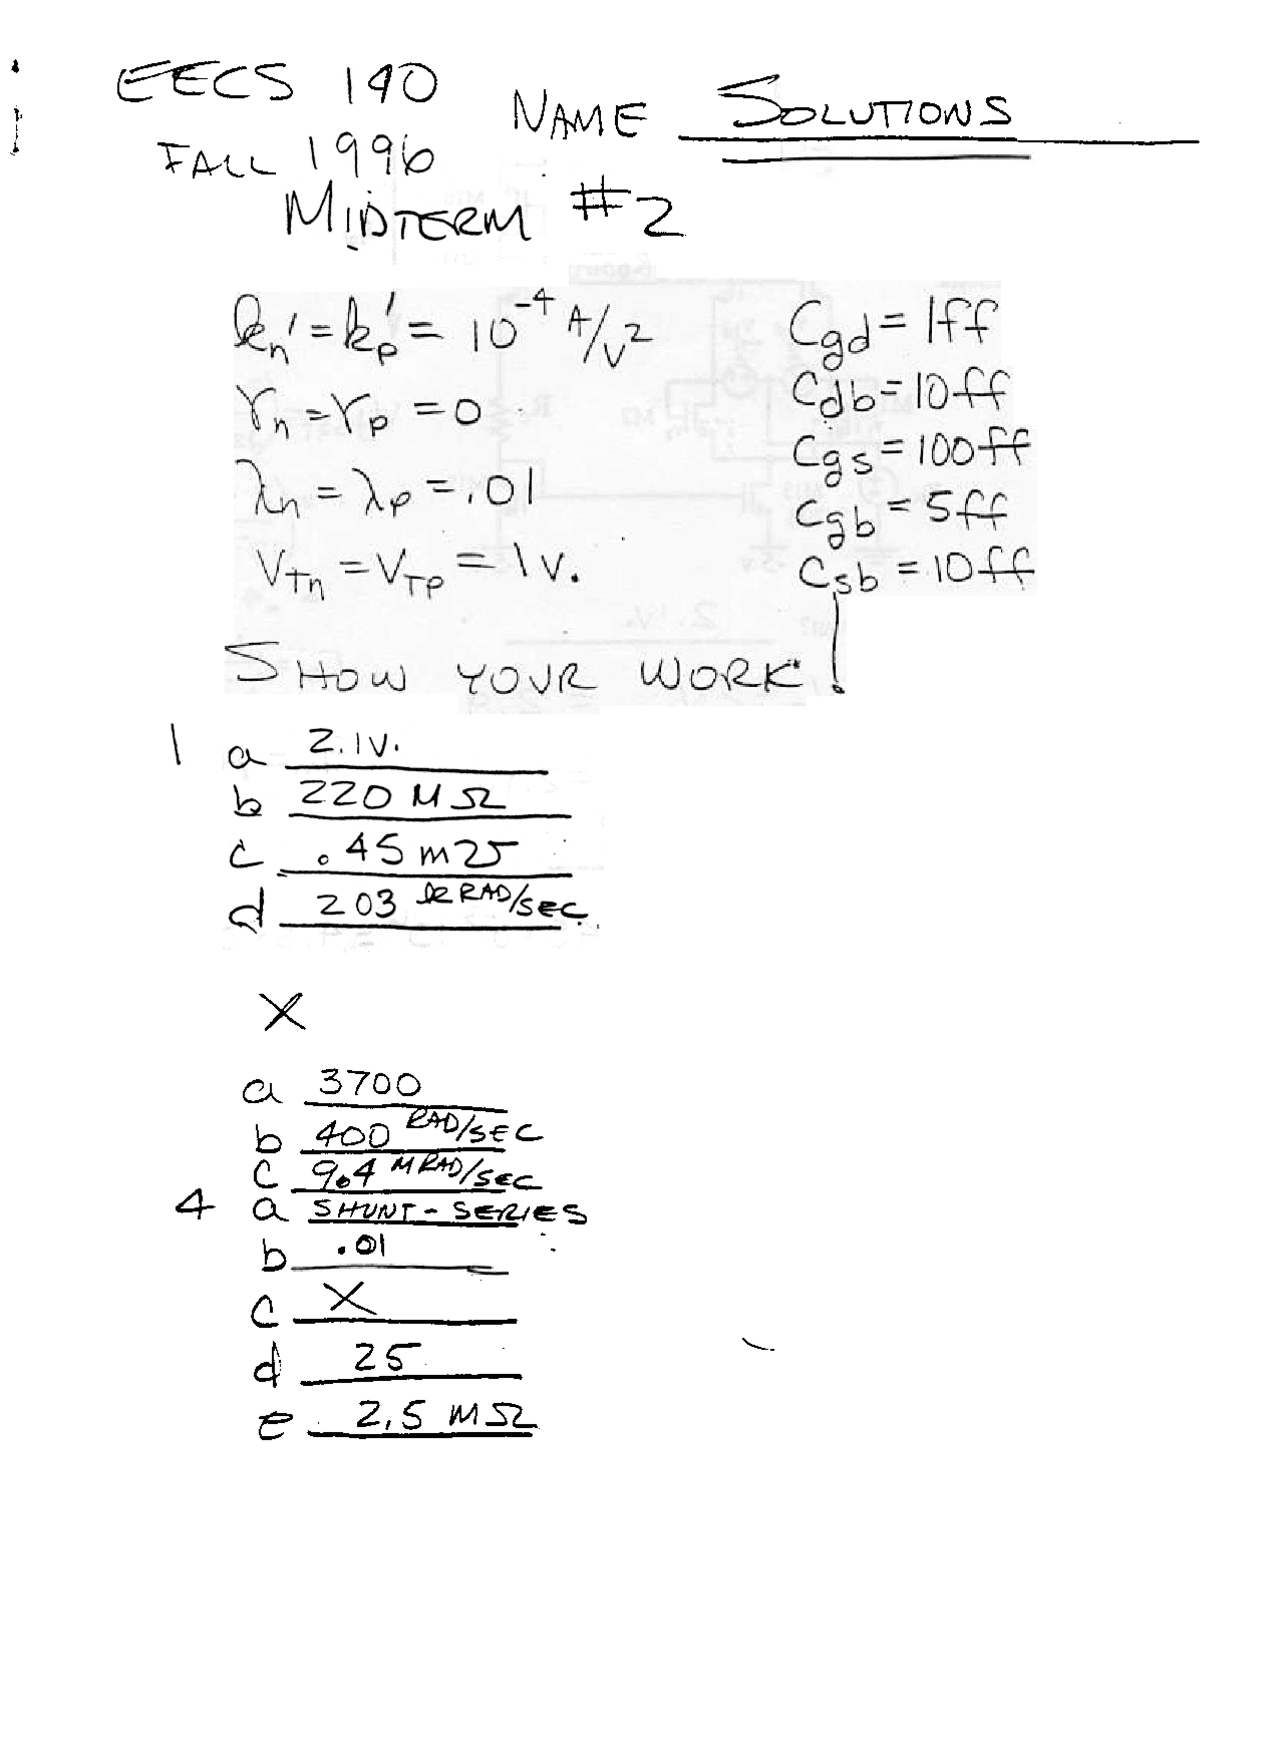 EECS 140
NAME SOLUTIONS
FALL 1996
MIDTERM #2
kn' = kp' = 10^-4 A/V^2
γn = γp = 0
λn = λp = .01
VTn = VTp = 1V.
Cgd = 1ff
Cdb = 10ff
Cgs = 100ff
Cgb = 5ff
Csb = 10ff
SHOW YOUR WORK!
1 a 2.1V.
b 220 MΩ
c .45 m℧
d 203 kRAD/SEC
X
a 3700
b 400 RAD/SEC
c 9.4 MRAD/SEC
4 a SHUNT-SERIES
b .01
c X
d 25
e 2.5 MΩ